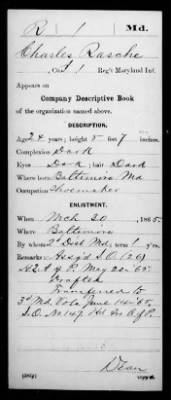 R | 1 | Md.
Charles Rasche
, Co. I 1 Reg't Maryland Inf.
Appears on
Company Descriptive Book
of the organization named above.
DESCRIPTION.
Age 24 years; height 5 feet 7 inches.
Complexion Dark
Eyes Dark; hair Dark
Where born Baltimore Md
Occupation Shoemaker
ENLISTMENT.
When Mch 20, 1865.
Where Baltimore
By whom 2d Dist Md; term 1 y'rs.
Remarks: Ass'g'd S.O. (29)
A of P. May 22 '65.
Drafted
Transferred to
3d Md. Vols. June 1st '65,
S.O. No 147 A of P.
Dean
Copyist.